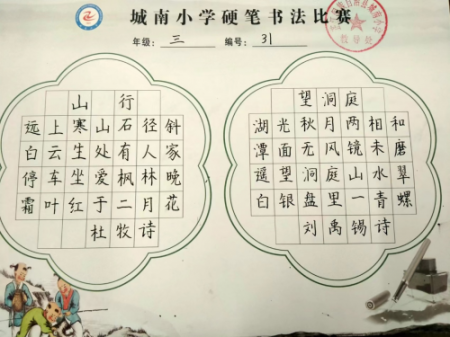 城南小学硬笔书法比赛
年级：三 编号：31
山行
远上寒山石径斜
白云生处有人家
停车坐爱枫林晚
霜叶红于二月花
杜牧诗
望洞庭
湖光秋月两相和
潭面无风镜未磨
遥望洞庭山水翠
白银盘里一青螺
刘禹锡诗